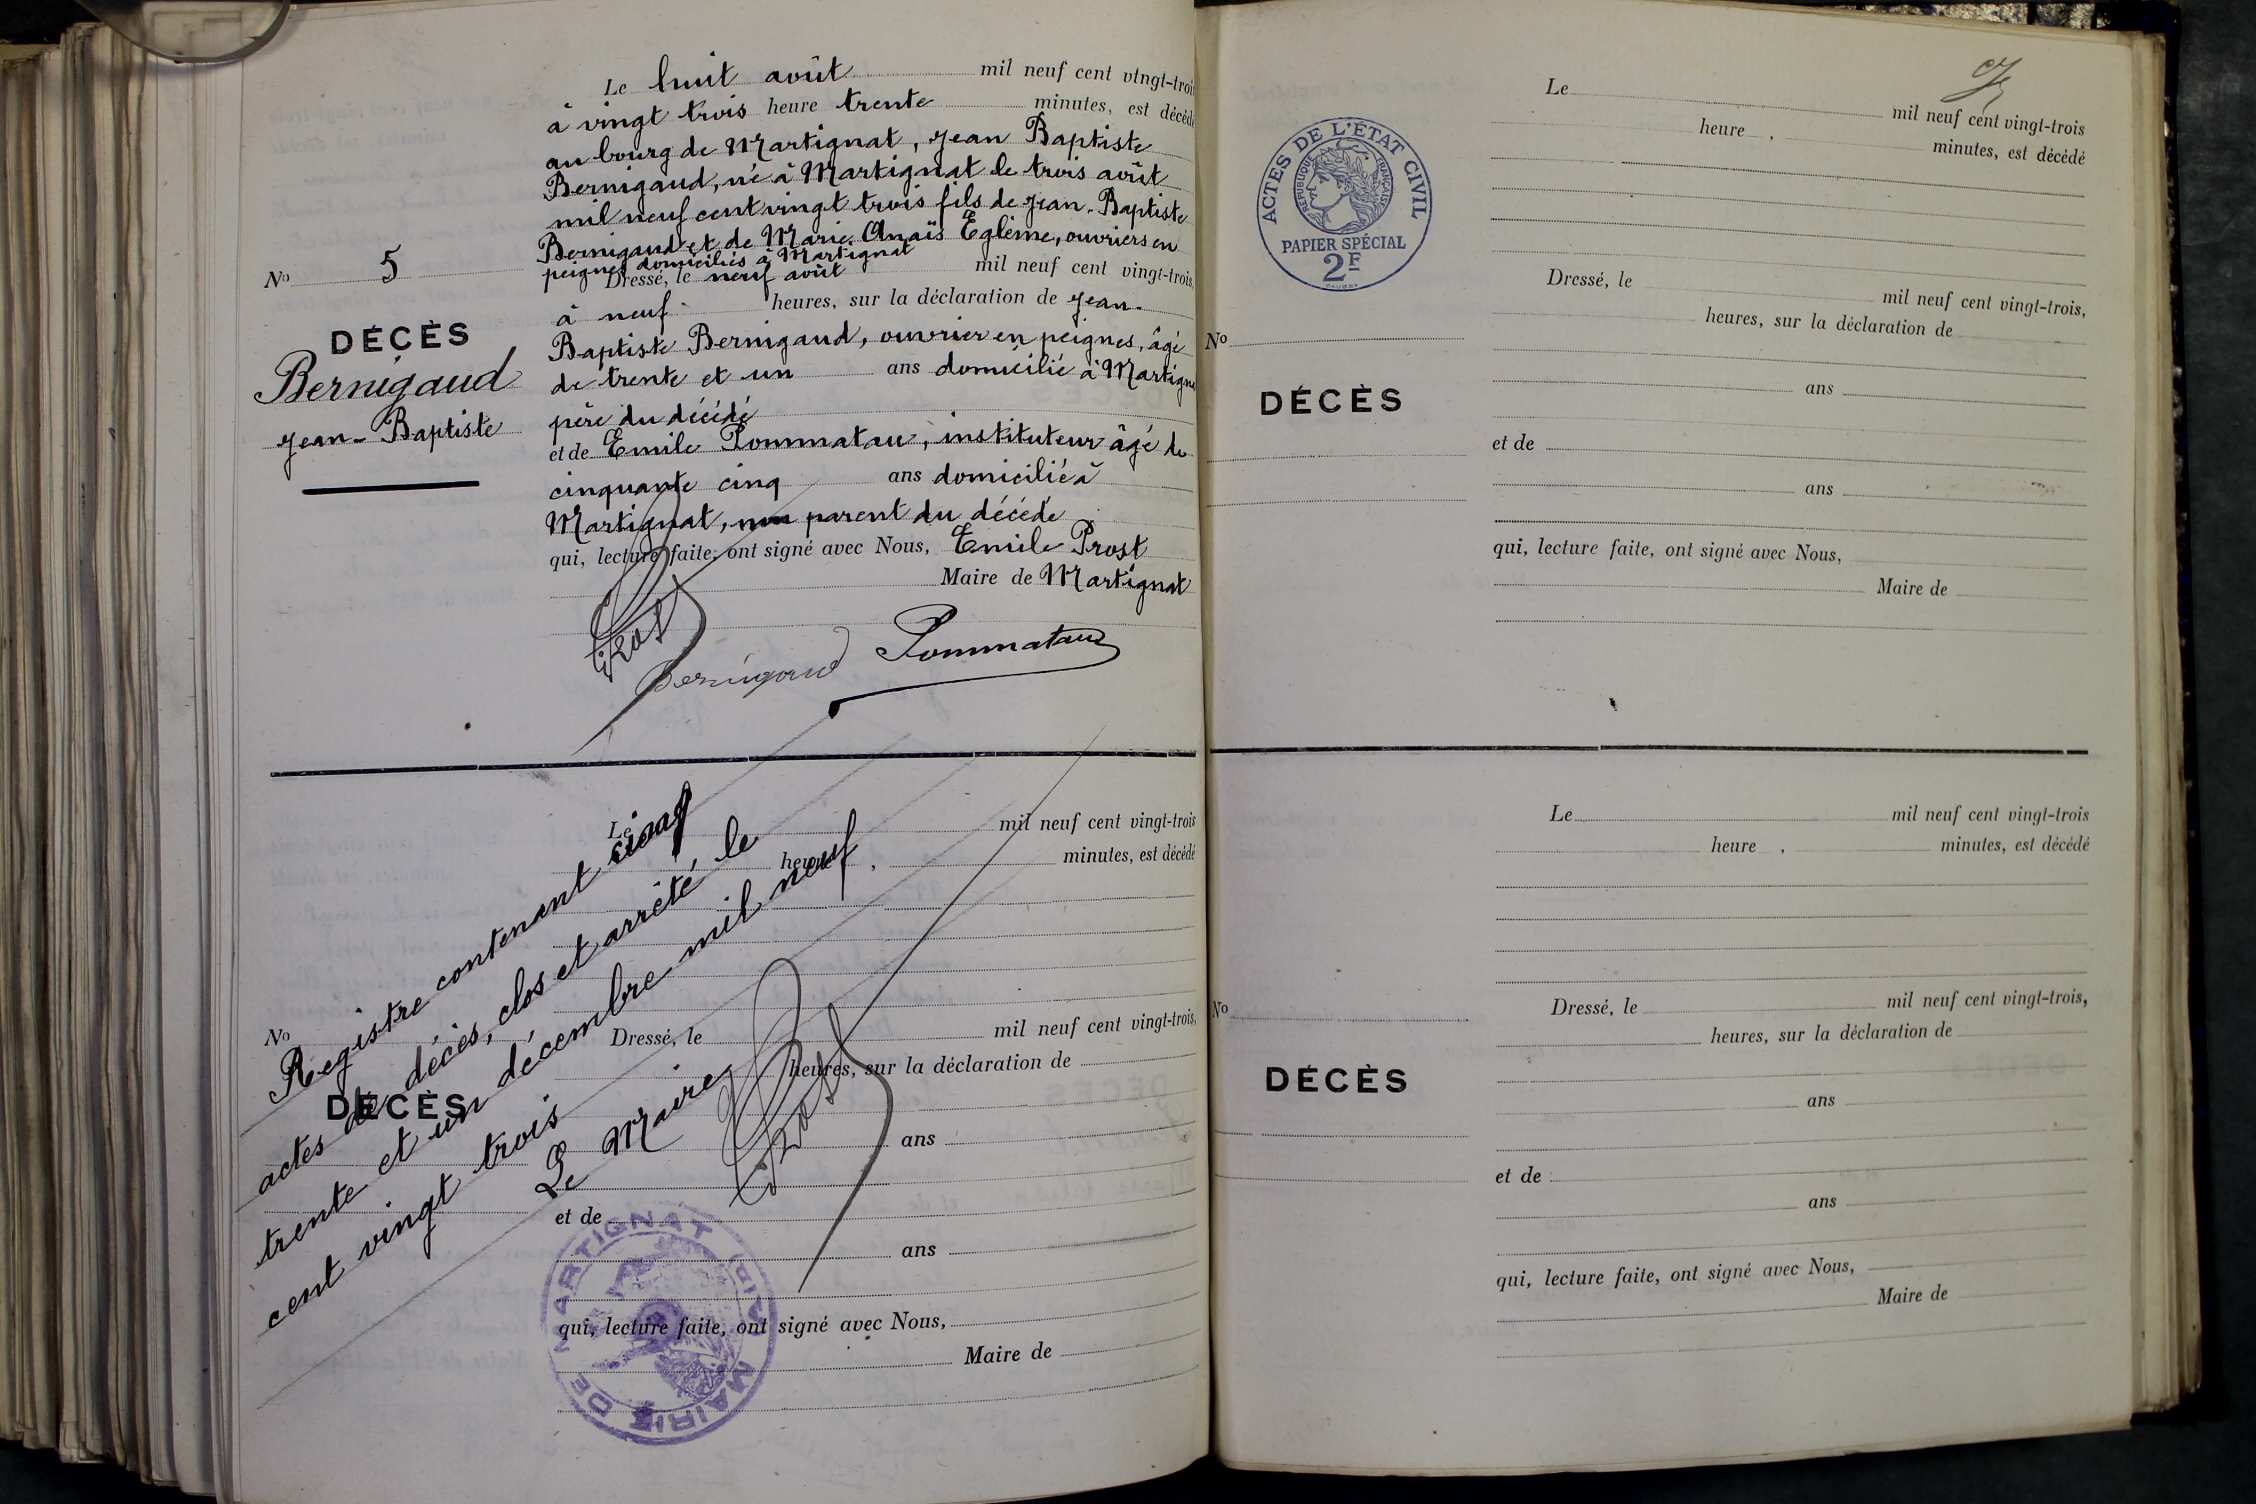 Le huit août mil neuf cent vingt-trois
à vingt trois heure trente minutes, est décédé
au bourg de Martignat, Jean Baptiste
Bernigaud, né à Martignat le trois août
mil neuf cent vingt trois fils de Jean-Baptiste
Bernigaud et de Marie Anaïs Eglème, ouvriers en
peignes domiciliés à Martignat
No 5
DÉCÈS
Bernigaud
Jean-Baptiste
Dressé, le neuf août mil neuf cent vingt-trois,
à neuf heures, sur la déclaration de Jean-
Baptiste Bernigaud, ouvrier en peignes, âgé
de trente et un ans domicilié à Martigna
père du décédé
et de Emile Pommatau, instituteur âgé de
cinquante cinq ans domicilié à
Martignat, non parent du décédé
qui, lecture faite, ont signé avec Nous, Emile Prost
Maire de Martignat
Prost
Bernigaud
Pommatau
Le mil neuf cent vingt-trois
heure , minutes, est décédé
No
DÉCÈS
Dressé, le mil neuf cent vingt-trois,
heures, sur la déclaration de
ans
et de
ans
qui, lecture faite, ont signé avec Nous,
Maire de
Registre contenant cinq
actes de décès, clos et arrêté le
trente et un décembre mil neuf
cent vingt trois
Le Maire
Prost
MAIRIE DE MARTIGNAT (AIN)
Le mil neuf cent vingt-trois
heure , minutes, est décédé
ACTES DE L'ÉTAT CIVIL
RÉPUBLIQUE FRANÇAISE
PAPIER SPÉCIAL
2F
No
DÉCÈS
Dressé, le mil neuf cent vingt-trois,
heures, sur la déclaration de
ans
et de
ans
qui, lecture faite, ont signé avec Nous,
Maire de
Le mil neuf cent vingt-trois
heure , minutes, est décédé
No
DÉCÈS
Dressé, le mil neuf cent vingt-trois,
heures, sur la déclaration de
ans
et de
ans
qui, lecture faite, ont signé avec Nous,
Maire de